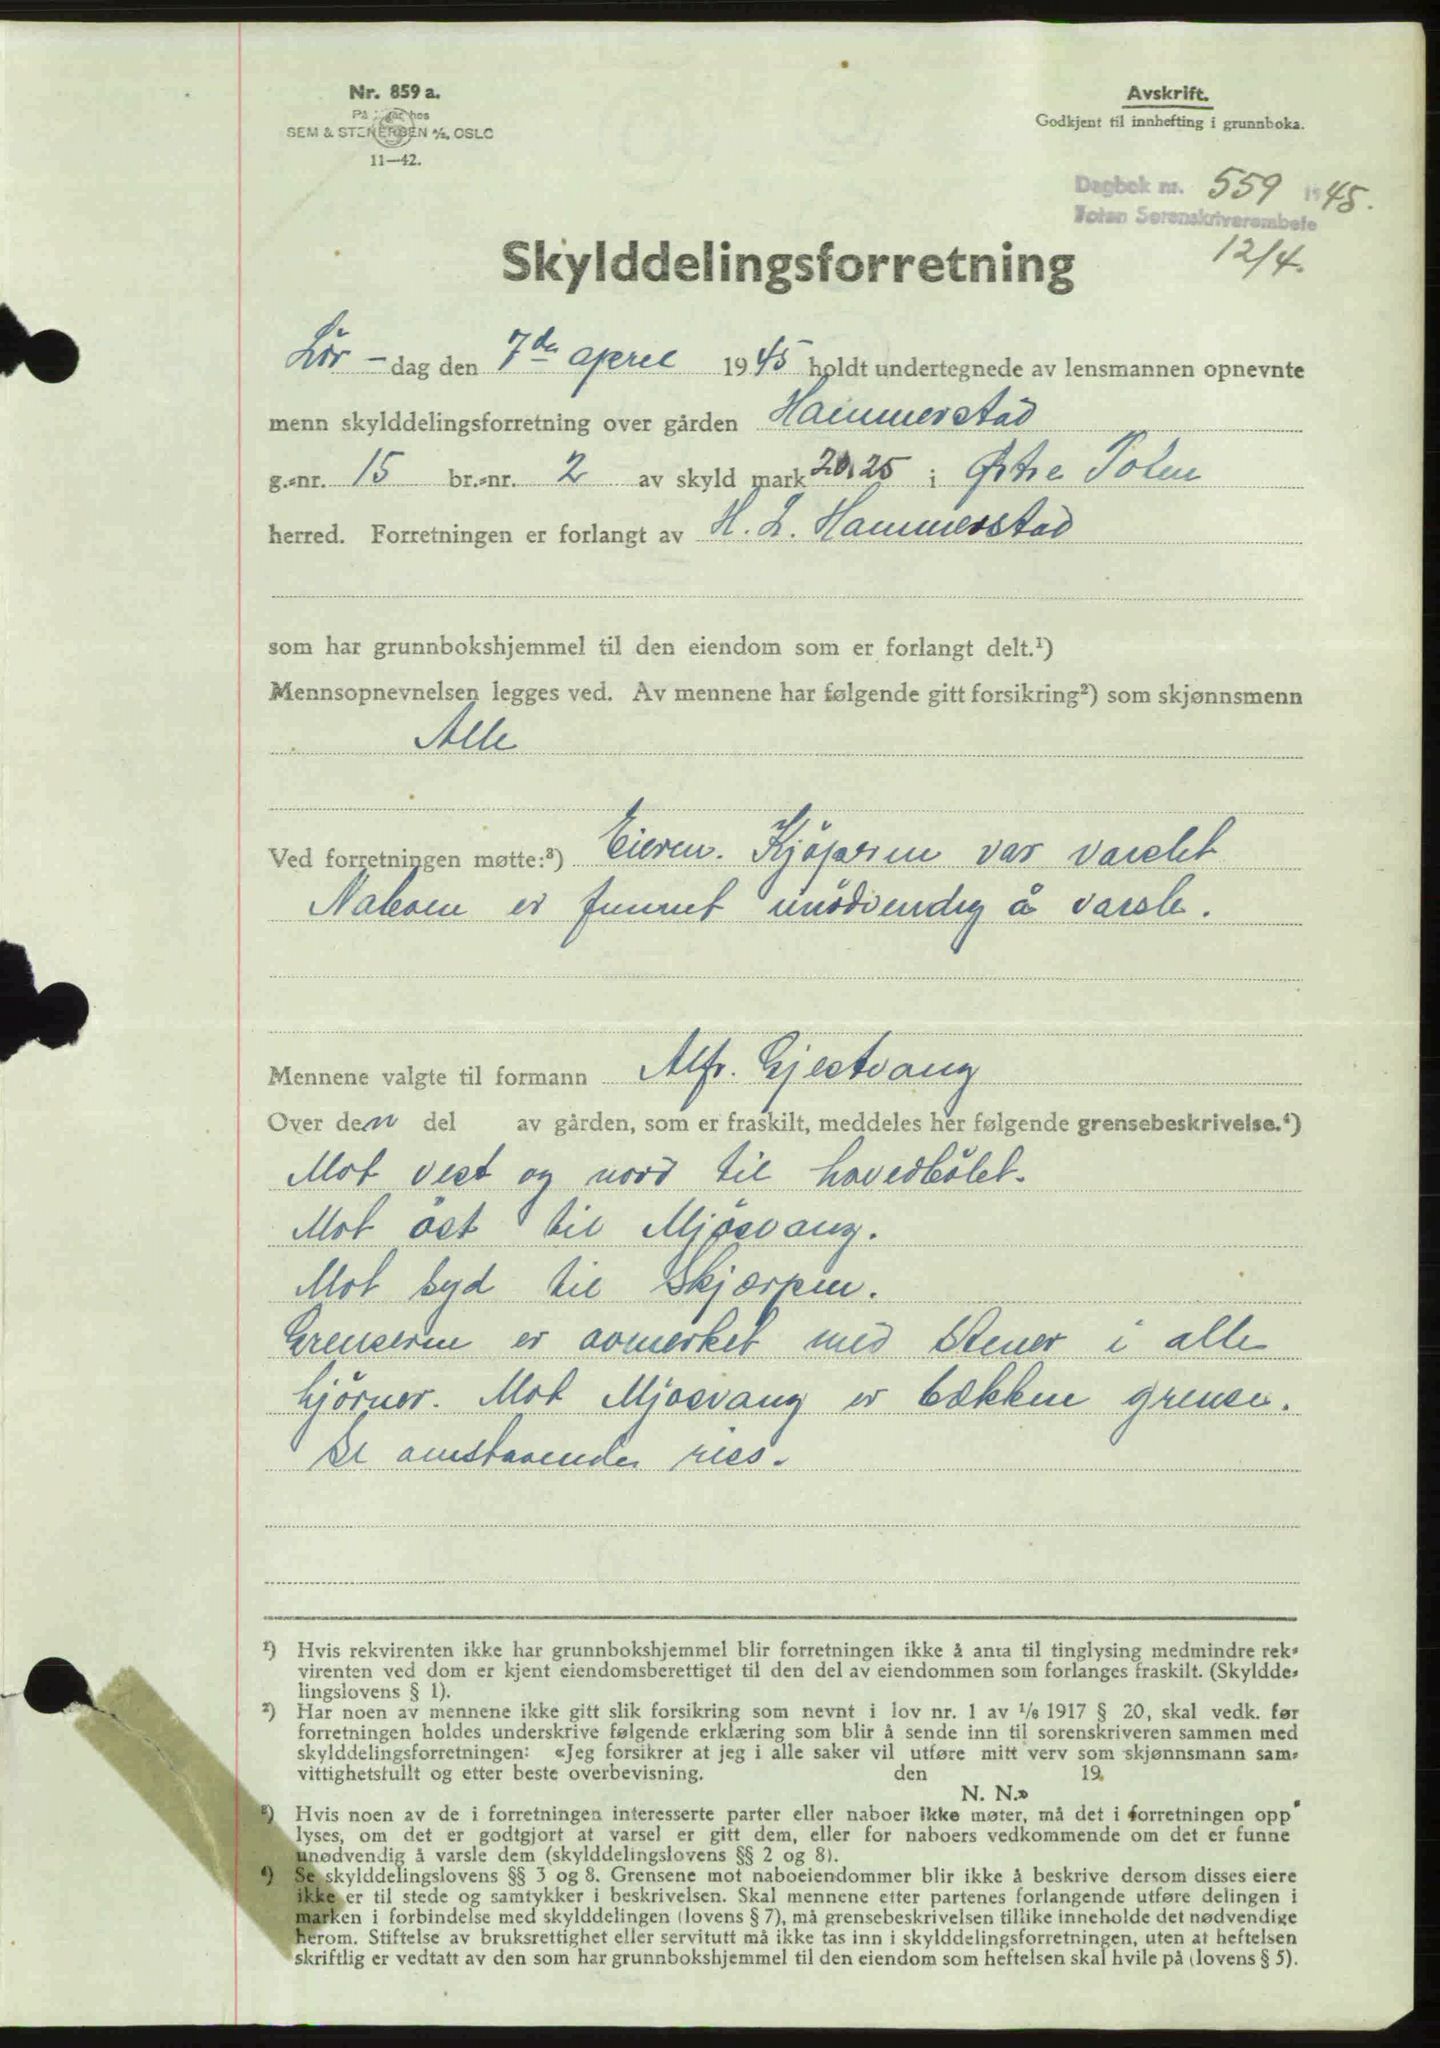 Nr. 859 a.
På lager hos
SEM & STENERSEN A/S, OSLO
11—42.
Avskrift.
Godkjent til innhefting i grunnboka.
Dagbok nr. 559 1945.
Toten Sorenskriverembete
12/4.
Skylddelingsforretning
Lör-dag den 7de april 1945 holdt undertegnede av lensmannen opnevnte
menn skylddelingsforretning over gården Hammerstad
g.-nr. 15 br.-nr. 2 av skyld mark 20,25 i Östre Toten
herred. Forretningen er forlangt av H. L. Hammerstad
som har grunnbokshjemmel til den eiendom som er forlangt delt.¹)
Mennsopnevnelsen legges ved. Av mennene har følgende gitt forsikring²) som skjønnsmenn
Alle
Ved forretningen møtte:³) Eieren. Kjöperen var varslet
Naboen er funnet unödvendig å varsle.
Mennene valgte til formann Alfr. Gjestvang
Over den del av gården, som er fraskilt, meddeles her følgende grensebeskrivelse.⁴)
Mot vest og nord til hovedbölet.
Mot öst til Mjösvang.
Mot syd til Skjærpen.
Grenserne er avmerket med stener i alle
hjörner. Mot Mjösvang er bækken grense.
Se omstaaende riss.
¹) Hvis rekvirenten ikke har grunnbokshjemmel blir forretningen ikke å anta til tinglysing medmindre rek-
virenten ved dom er kjent eiendomsberettiget til den del av eiendommen som forlanges fraskilt. (Skyldde-
lingslovens § 1).
²) Har noen av mennene ikke gitt slik forsikring som nevnt i lov nr. 1 av 1/6 1917 § 20, skal vedk. før
forretningen holdes underskrive følgende erklæring som blir å sende inn til sorenskriveren sammen med
skylddelingsforretningen: «Jeg forsikrer at jeg i alle saker vil utføre mitt verv som skjønnsmann sam-
vittighetsfullt og etter beste overbevisning. den 19
N. N.»
³) Hvis noen av de i forretningen interesserte parter eller naboer ikke møter, må det i forretningen opp
lyses, om det er godtgjort at varsel er gitt dem, eller for naboers vedkommende om det er funne
unødvendig å varsle dem (skylddelingslovens §§ 2 og 8).
⁴) Se skylddelingslovens §§ 3 og 8. Grensene mot naboeiendommer blir ikke å beskrive dersom disses eiere
ikke er til stede og samtykker i beskrivelsen. Skal mennene etter partenes forlangende utføre delingen i
marken i forbindelse med skylddelingen (lovens § 7), må grensebeskrivelsen tillike inneholde det nødvendige
herom. Stiftelse av bruksrettighet eller servitutt må ikke tas inn i skylddelingsforretningen, uten at heftelsen
skriftlig er vedtatt av den som har grunnbokshjemmel til den eiendom som heftelsen skal hvile på (lovens § 5).